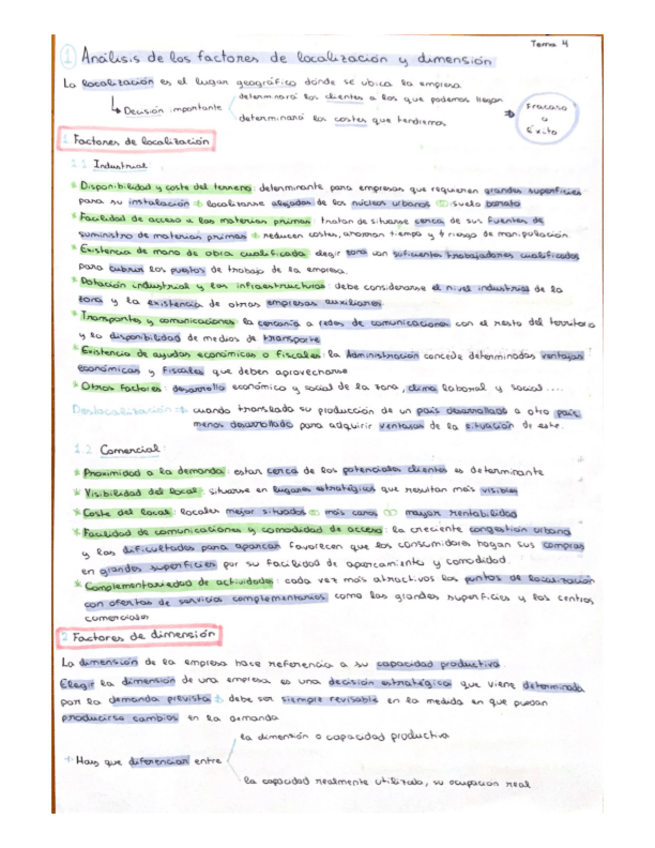 Tema 4
1 Análisis de los factores de localización y dimensión
La localización es el lugar geográfico donde se ubica la empresa
Decisión importante
determinará los clientes a los que podemos llegar
determinará los costes que tendremos
Fracaso
o
Éxito
1 Factores de localización
1.1 Industrial:
* Disponibilidad y coste del terreno: determinante para empresas que requieren grandes superficies
para su instalación → localizarse alejadas de los núcleos urbanos suelo barato
* Facilidad de acceso a las materias primas: tratan de situarse cerca de sus fuentes de
suministro de materias primas → reducen costes, ahorran tiempo y ↓ riesgo de manipulación.
* Existencia de mano de obra cualificada: elegir zona con suficientes trabajadores cualificados
para cubrir los puestos de trabajo de la empresa.
* Dotación industrial y las infraestructuras: debe considerarse el nivel industrial de la
zona y la existencia de otras empresas auxiliares
* Transportes y comunicaciones: la cercanía a redes de comunicaciones con el resto del territorio
y la disponibilidad de medios de transporte
* Existencia de ayudas económicas o fiscales: la Administración concede determinadas ventajas
económicas y fiscales que deben aprovecharse
* Otros factores: desarrollo económico y social de la zona, clima laboral y social ....
Deslocalización → cuando translada su producción de un país desarrollado a otro país
menos desarrollado para adquirir ventajas de la situación de este.
1.2 Comercial:
* Proximidad a la demanda: estar cerca de los potenciales clientes es determinante
* Visibilidad del local: situarse en lugares estratégicos que resultan más visibles
* Coste del local: locales mejor situados más caros mayor rentabilidad
* Facilidad de comunicaciones y comodidad de acceso: la creciente congestión urbana
y las dificultades para aparcar favorecen que los consumidores hagan sus compras
en grandes superficies por su facilidad de aparcamiento y comodidad.
* Complementariedad de actividades: cada vez más atractivos los puntos de localización
con ofertas de servicios complementarios como las grandes superficies y los centros
comerciales
2 Factores de dimensión
La dimensión de la empresa hace referencia a su capacidad productiva.
Elegir la dimensión de una empresa es una decisión estratégica que viene determinada
por la demanda prevista → debe ser siempre revisable en la medida en que puedan
producirse cambios en la demanda
la dimensión o capacidad productiva
→ Hay que diferenciar entre
la capacidad realmente utilizada, su ocupación real